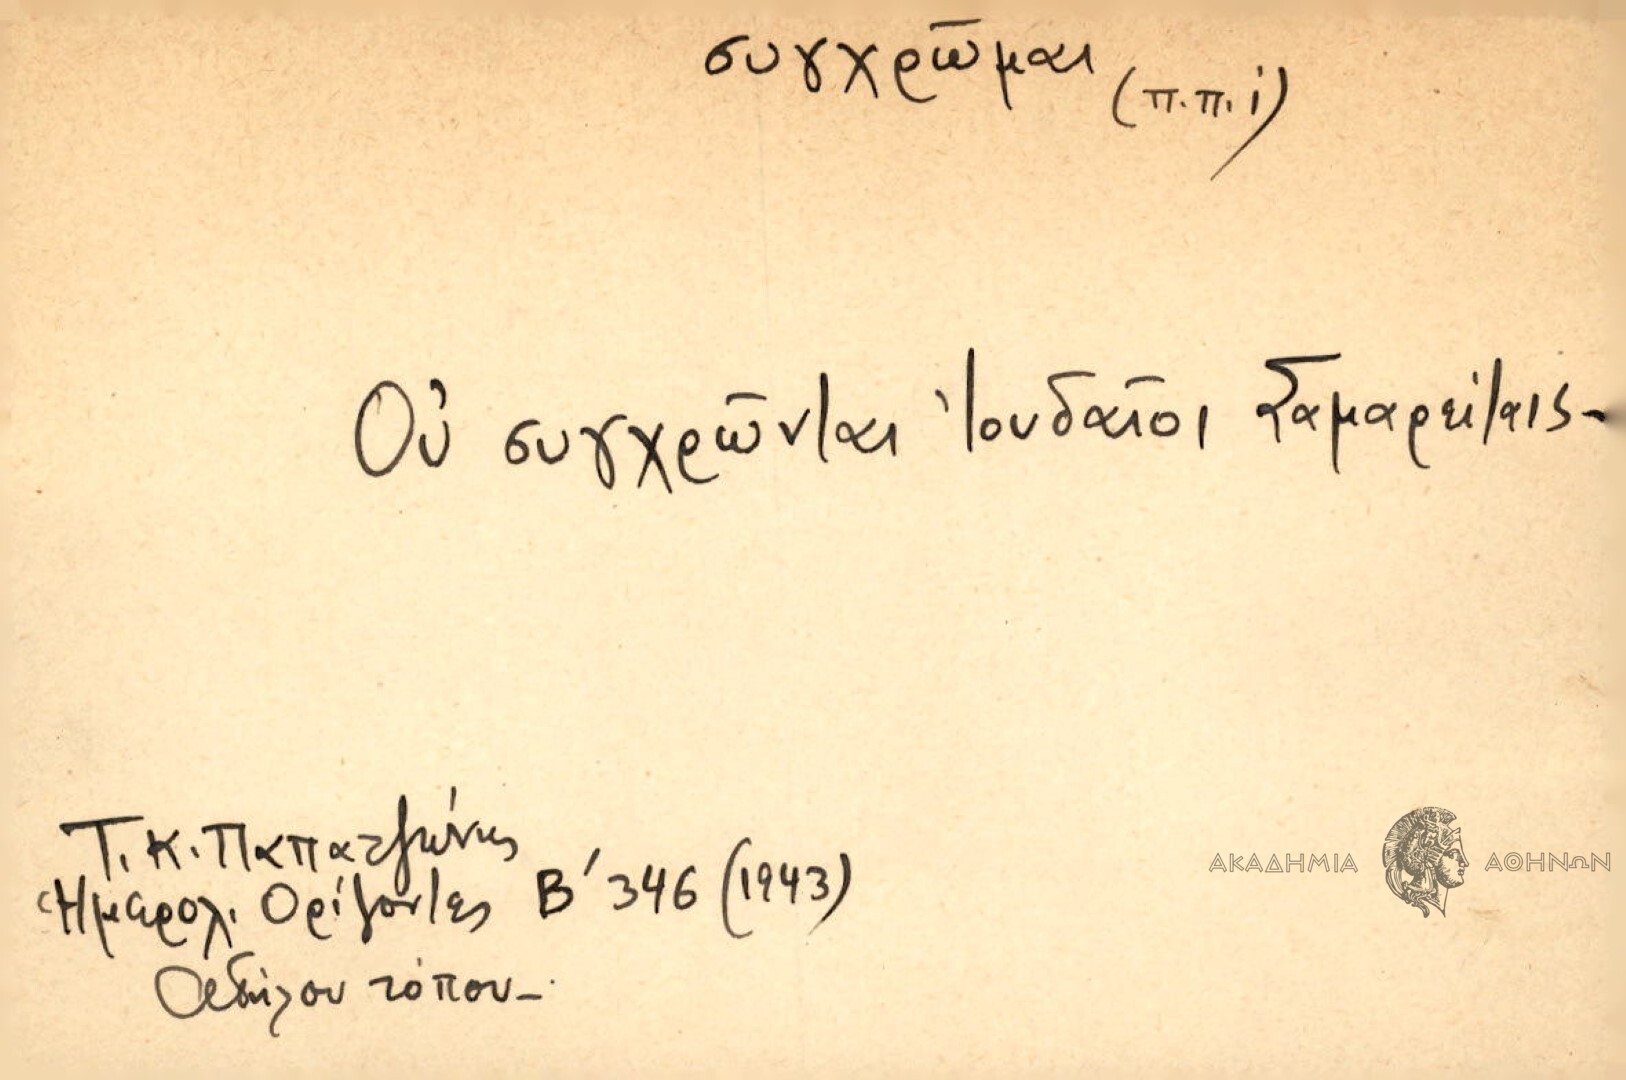 συγχρῶμαι
(π.π.ί)
Οὐ συγχρῶνται Ἰουδαῖοι Σαμαρείταις-
Τ. Κ. Παπατζώνης
Ἡμερολ. Ορίζοντες Β' 346 (1943)
Αδήλου τόπου-
ΑΚΑΔΗΜΙΑ ΑΘΗΝΩΝ